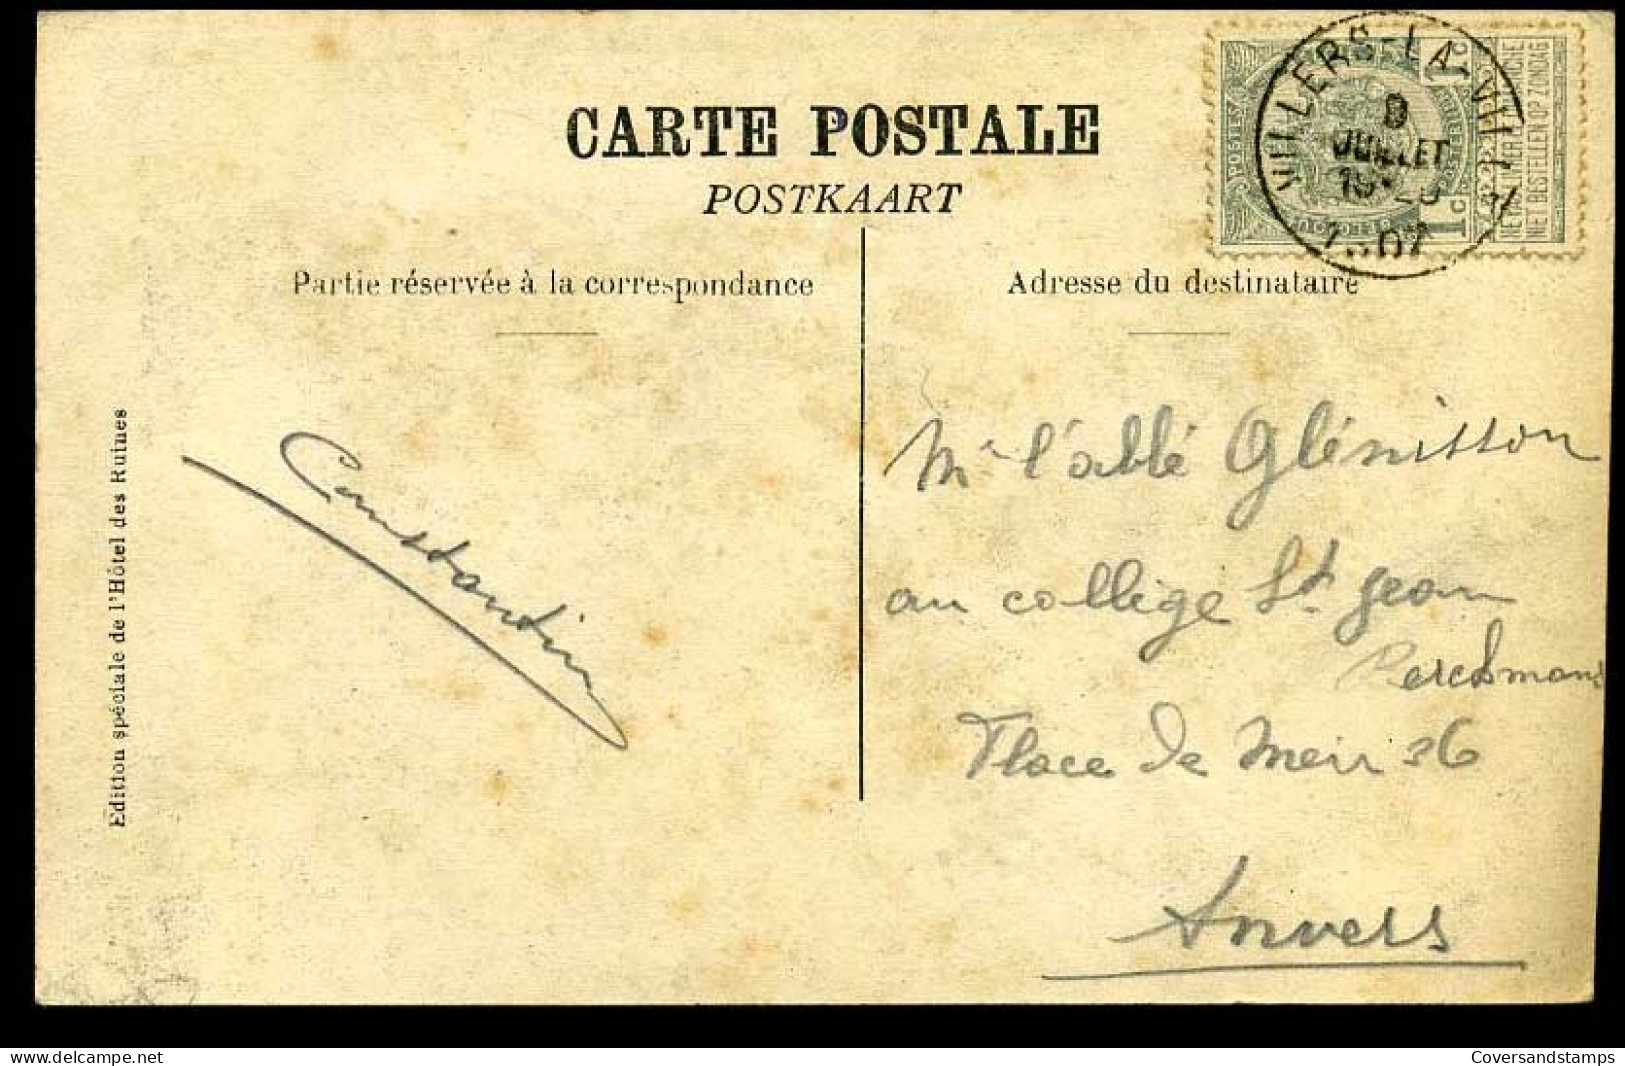 CARTE POSTALE
POSTKAART
Partie réservée à la correspondance
Adresse du destinataire
VILLERS-LA-VILLE
JUILLET
POSTES
NE PAS LIVRER LE DIMANCHE
NIET BESTELLEN OP ZONDAG
Edition spéciale de l'Hôtel des Ruines
Constantin
Mr l'abbé Glénisson
au collège St Jean
Berchmans
Place de Meir 36
Anvers
www.delcampe.net
Coversandstamps